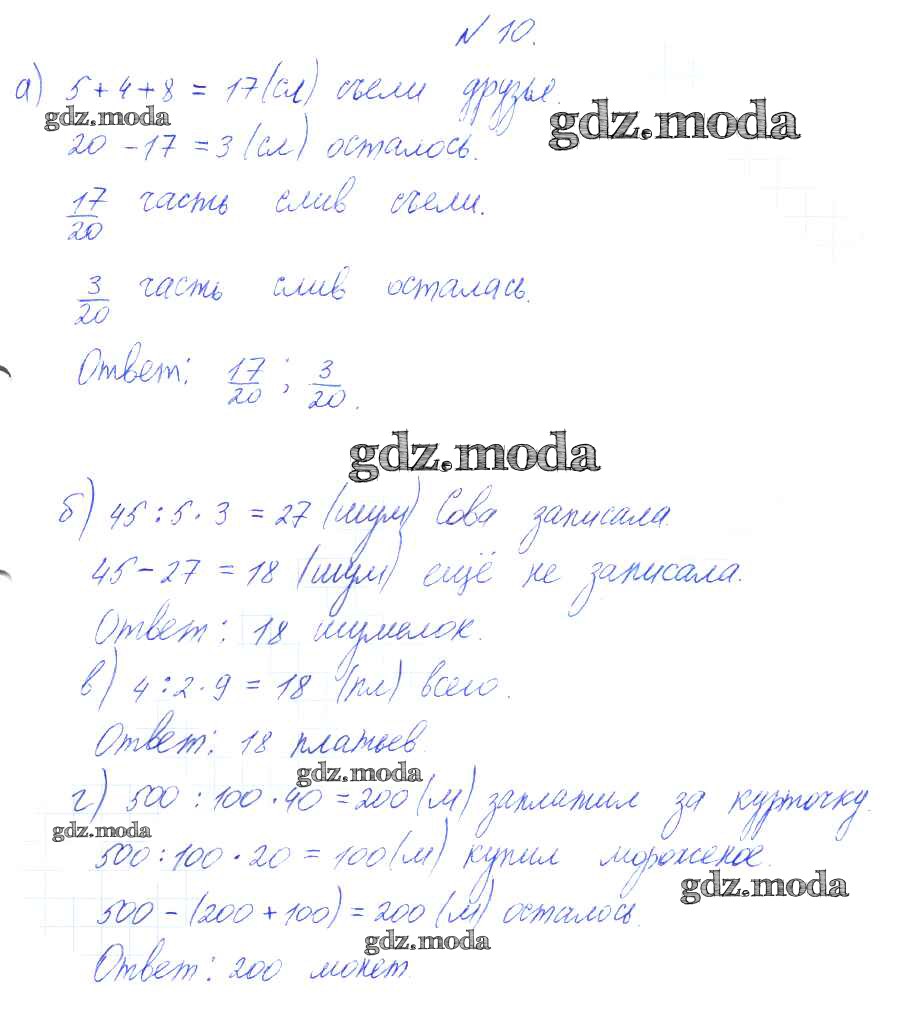 № 10.
а) 5 + 4 + 8 = 17 (сл) съели друзья.
gdz.moda
gdz.moda
20 - 17 = 3 (сл) осталось.
17/20 часть слив съели.
3/20 часть слив осталась.
Ответ: 17/20 ; 3/20.
gdz.moda
б) 45 : 5 · 3 = 27 (шум) Сова записала.
45 - 27 = 18 (шум) ещё не записала.
Ответ: 18 шумелок.
в) 4 : 2 · 9 = 18 (пл) всего.
Ответ: 18 платьев.
gdz.moda
г) 500 : 100 · 40 = 200 (м) заплатил за курточку.
gdz.moda
500 : 100 · 20 = 100 (м) купил мороженое.
gdz.moda
500 - (200 + 100) = 200 (м) осталось.
gdz.moda
Ответ: 200 монет.